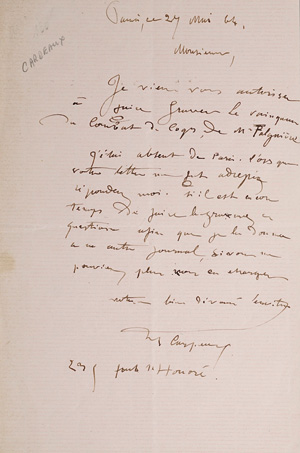 CARPEAUX
Paris, ce 27 Mai 64.
Monsieur,
Je viens vous autoriser
à faire graver le vainqueur
du Combat de Coqs, de Mr Falguière
J'étais absent de Paris lorsque
votre lettre me fut adressée
répondez moi. S'il est encore
temps de faire la gravure en
question afin que je la donne
à un autre journal, si vous ne
pouviez plus vous en charger
votre bien dévoué serviteur
Bte Carpeaux
faub St Honoré.